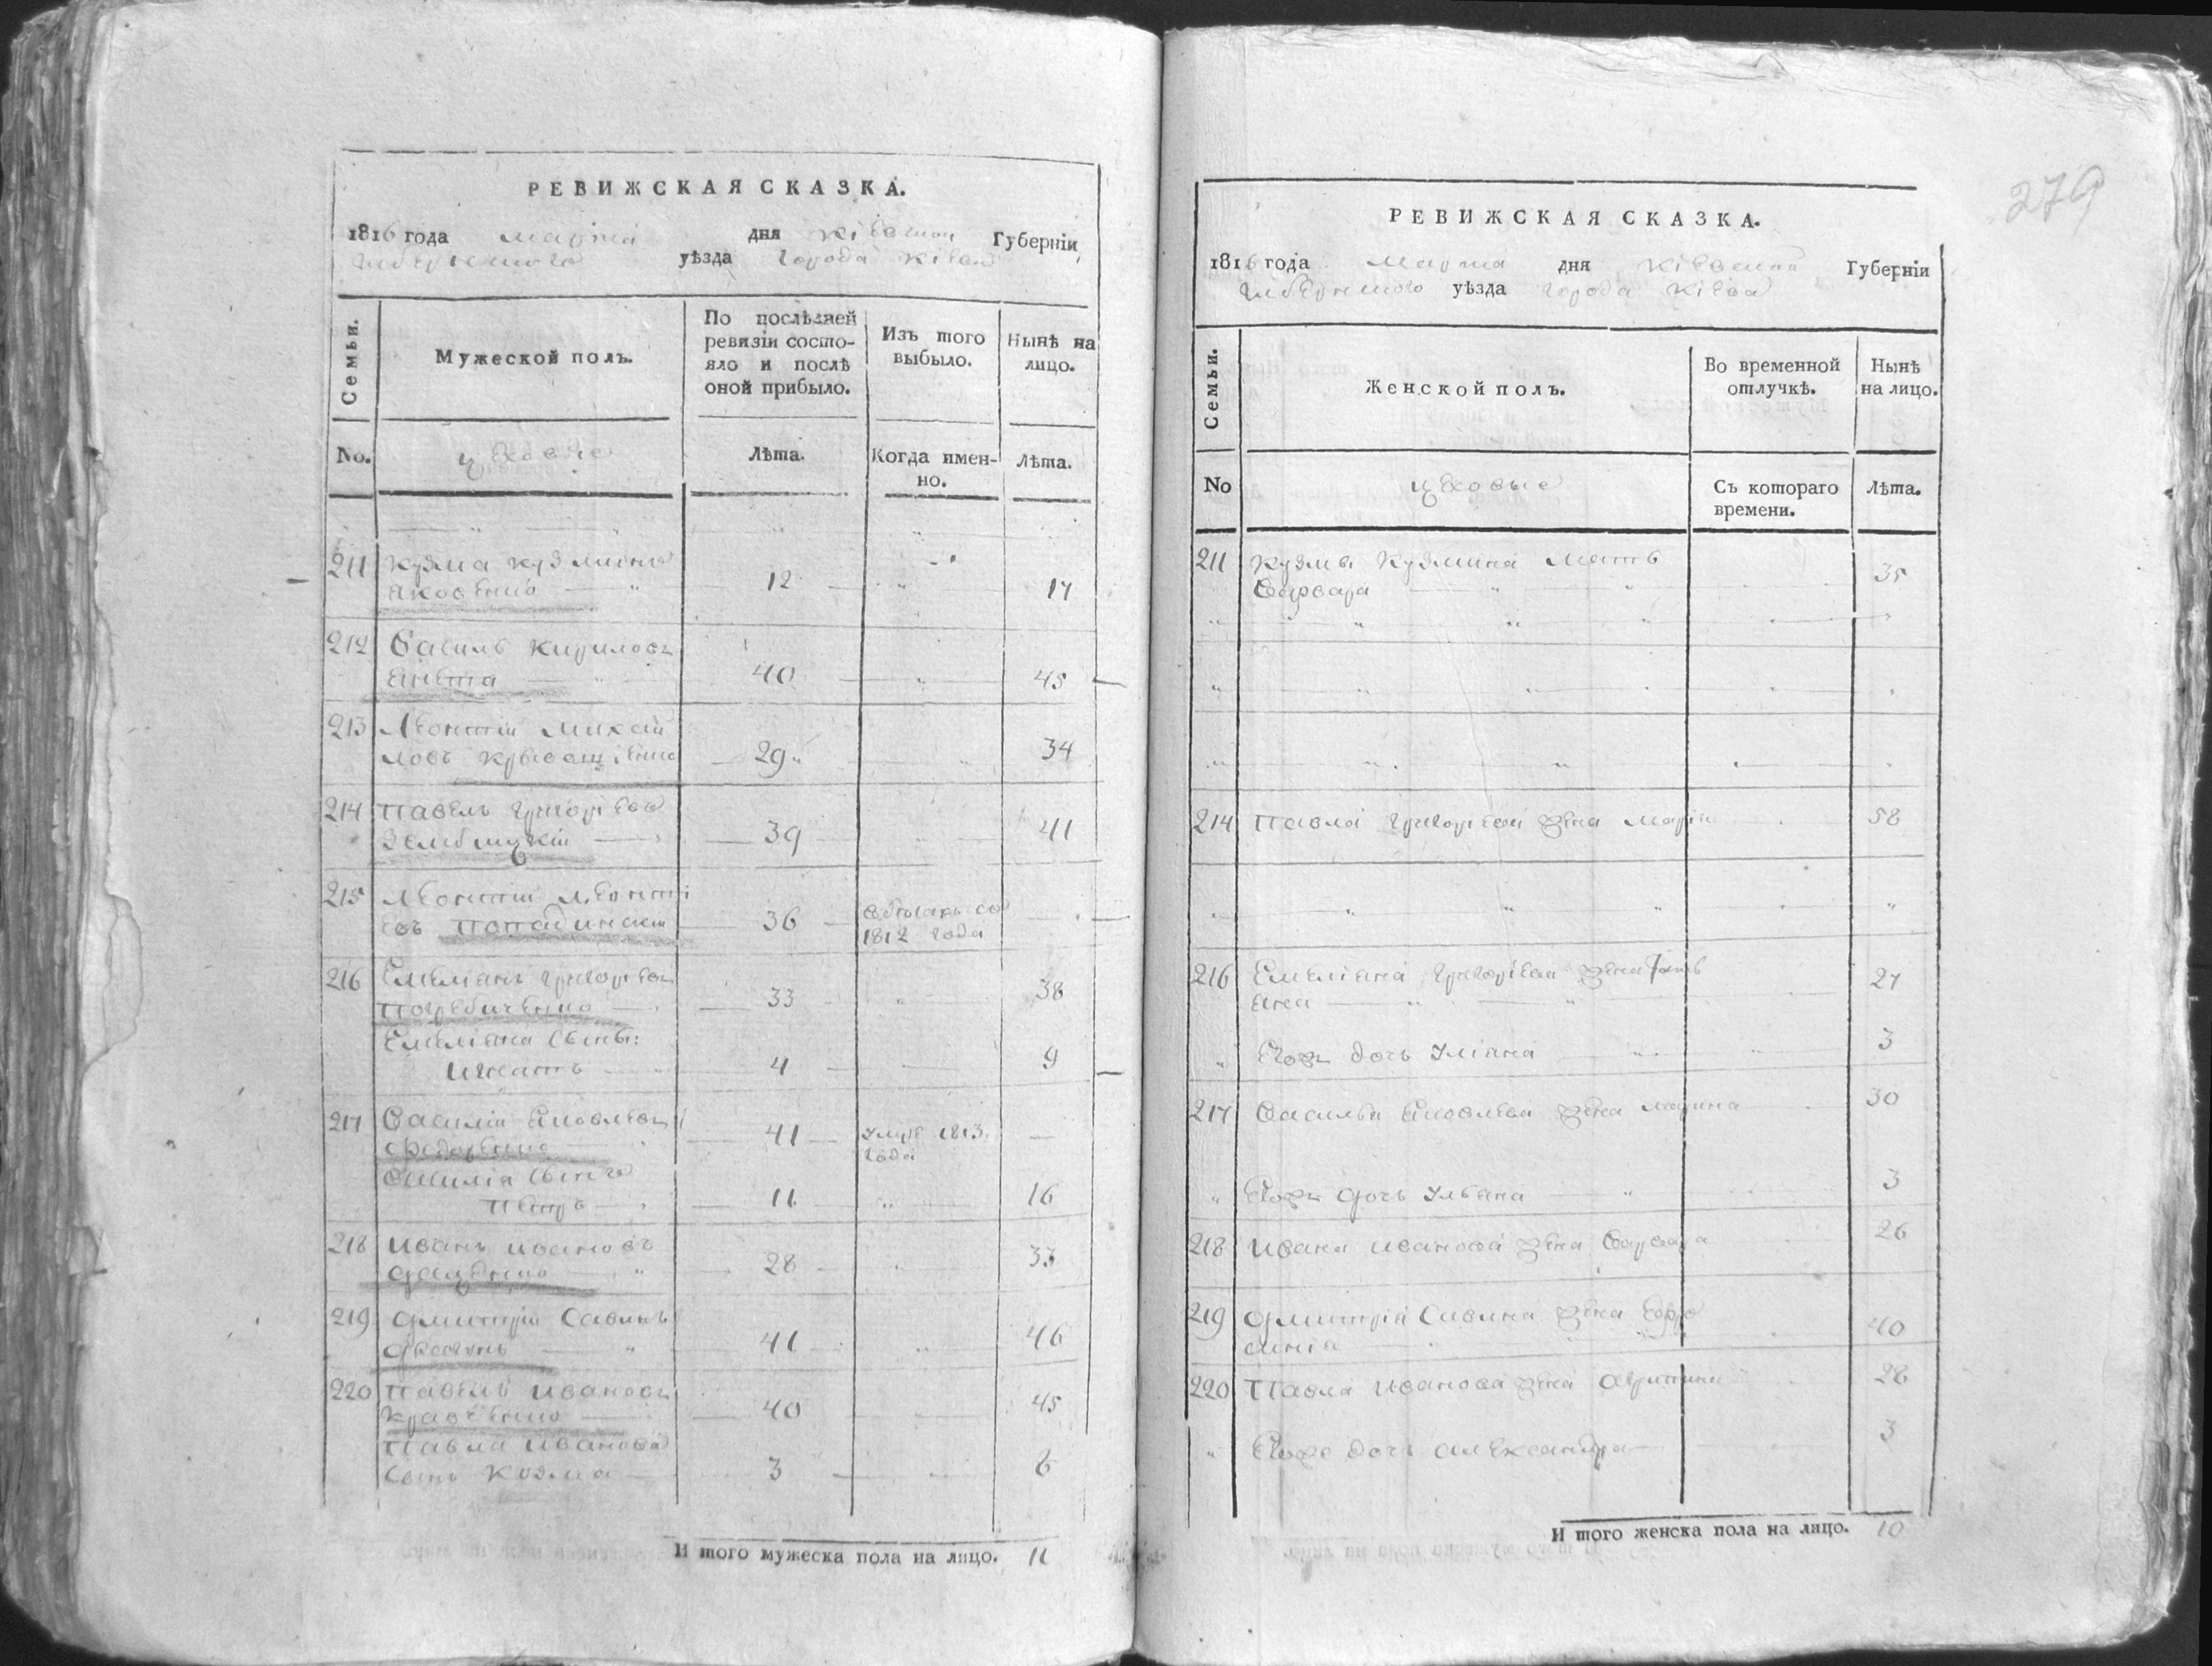 РЕВИЖСКАЯ СКАЗКА.
1816 года марта дня Кіевской Губерніи
уѣзда города Кіева
Семьи.
Мужеской полъ.
По послѣдней ревизіи состояло и послѣ оной прибыло.
Изъ того выбыло.
Нынѣ на лицо.
No.
цеховые
Лѣта.
Когда именно.
Лѣта.
211 Кузма Кузминъ
Яковенко 12 17
212 Василь Кириловъ
40 45
213 Леонтій Михай
ловъ 29 34
214 Павелъ Григорьевъ
39 41
215 Леонтій Леонті
евъ 36
1812 года
216 Емеліанъ Григорьевъ
Погребиченко 33 38
Емеліяна сынъ:
Игнатъ 4 9
217 Василій Яковлевъ
Федоренко 41 умре 1813
года
Василія сынъ
Петръ 11 16
218 Иванъ Ивановъ
28 33
219 Дмитрій Савинъ
41 46
220 Павелъ Ивановъ
Кравченко 40 45
Павла Иванова
сынъ Козма 3 8
И того мужеска пола на лицо. 11
279
РЕВИЖСКАЯ СКАЗКА.
1816 года Марта дня Кіевской Губерніи
уѣзда города Кіева
Семьи.
Женской полъ.
Во временной отлучкѣ.
Нынѣ на лицо.
No
цеховые
Съ котораго времени.
Лѣта.
211 Кузмы Кузмина мать
Варвара 35
214 Павла Григорьева жена Марія 58
216 Емеліяна Григорьева жена Тать
яна 27
дочь Уліяна 3
217 Василья Яковлева жена Марина 30
дочь Ульяна 3
218 Ивана Иванова жена Варвара 26
219 Дмитрія Савина жена Ефро
синія 40
220 Павла Иванова жена 28
дочь Александра 3
И того женска пола на лицо. 10